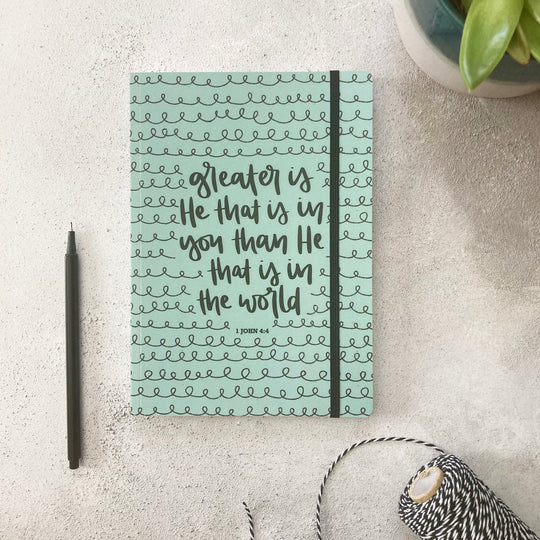 greater is
He that is in
you than He
that is in
the world
1 JOHN 4:4